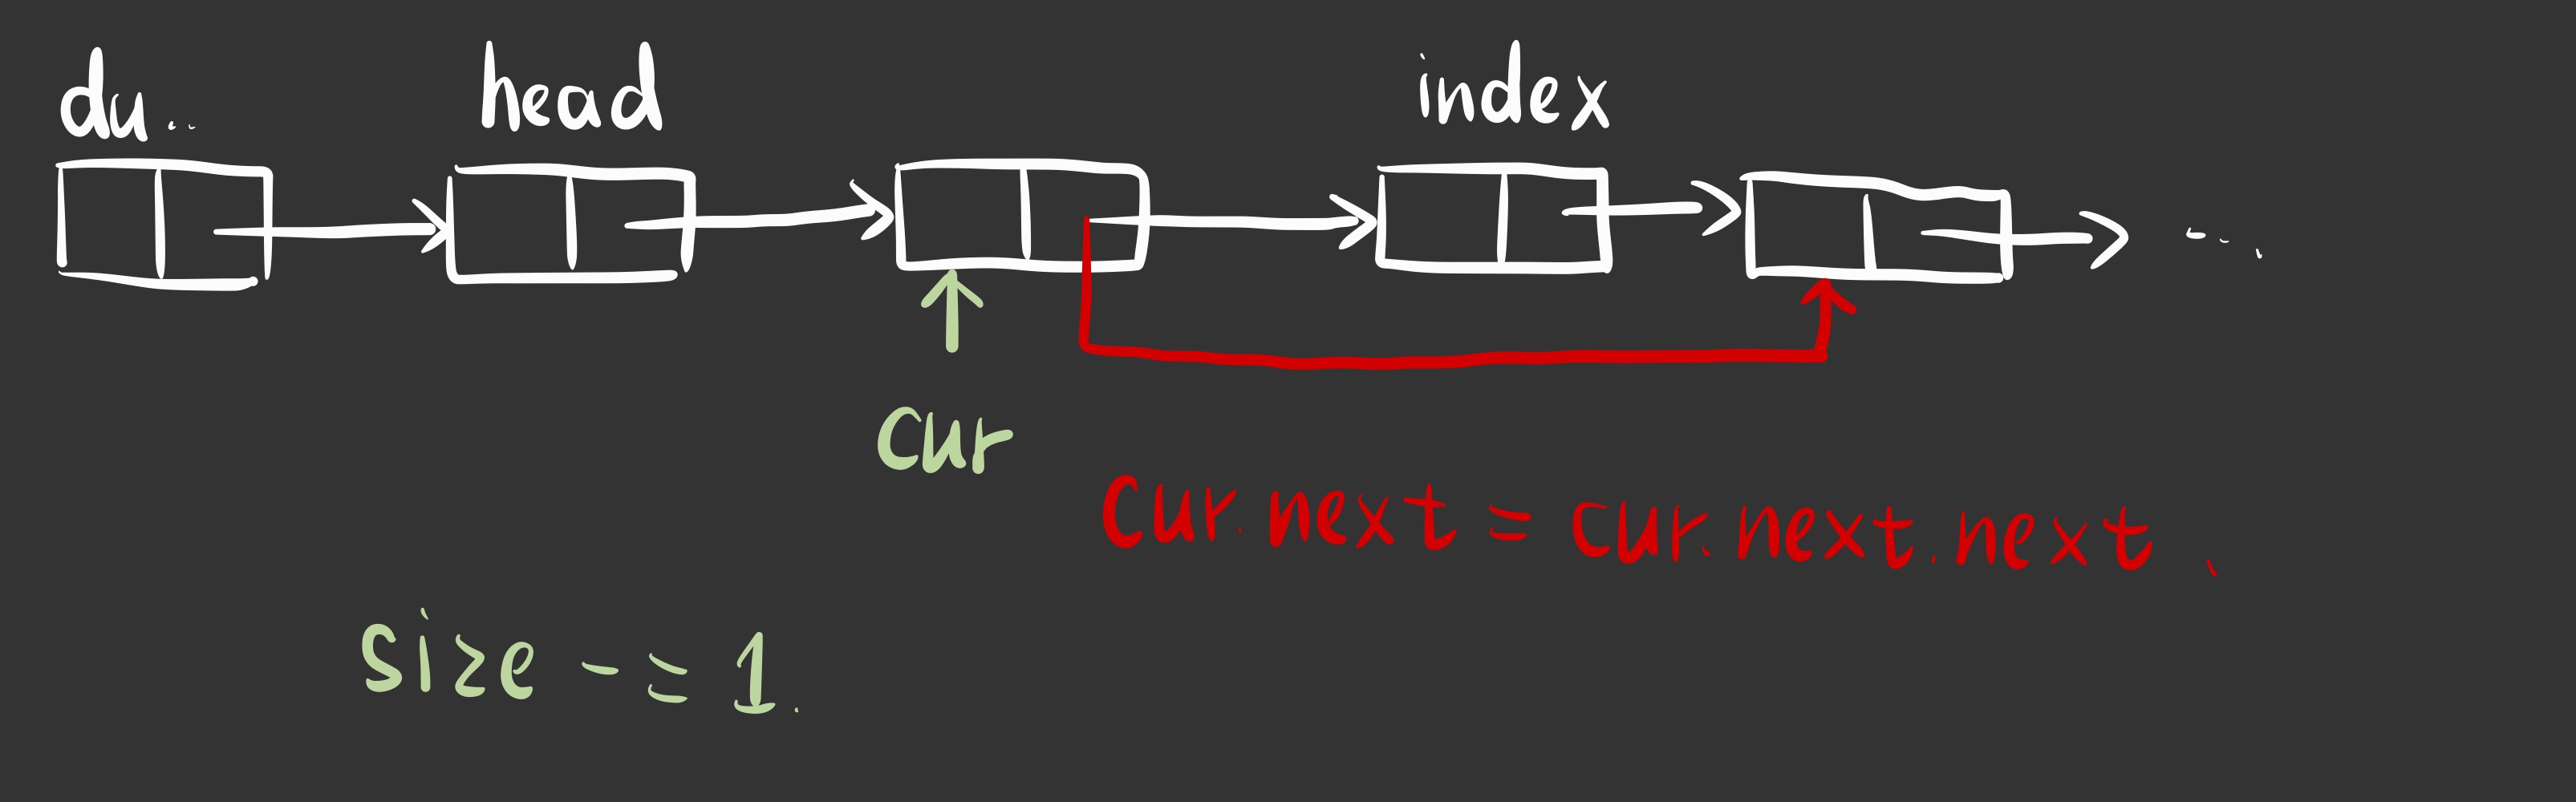 du.. head index
cur
cur.next = cur.next.next.
size -= 1.